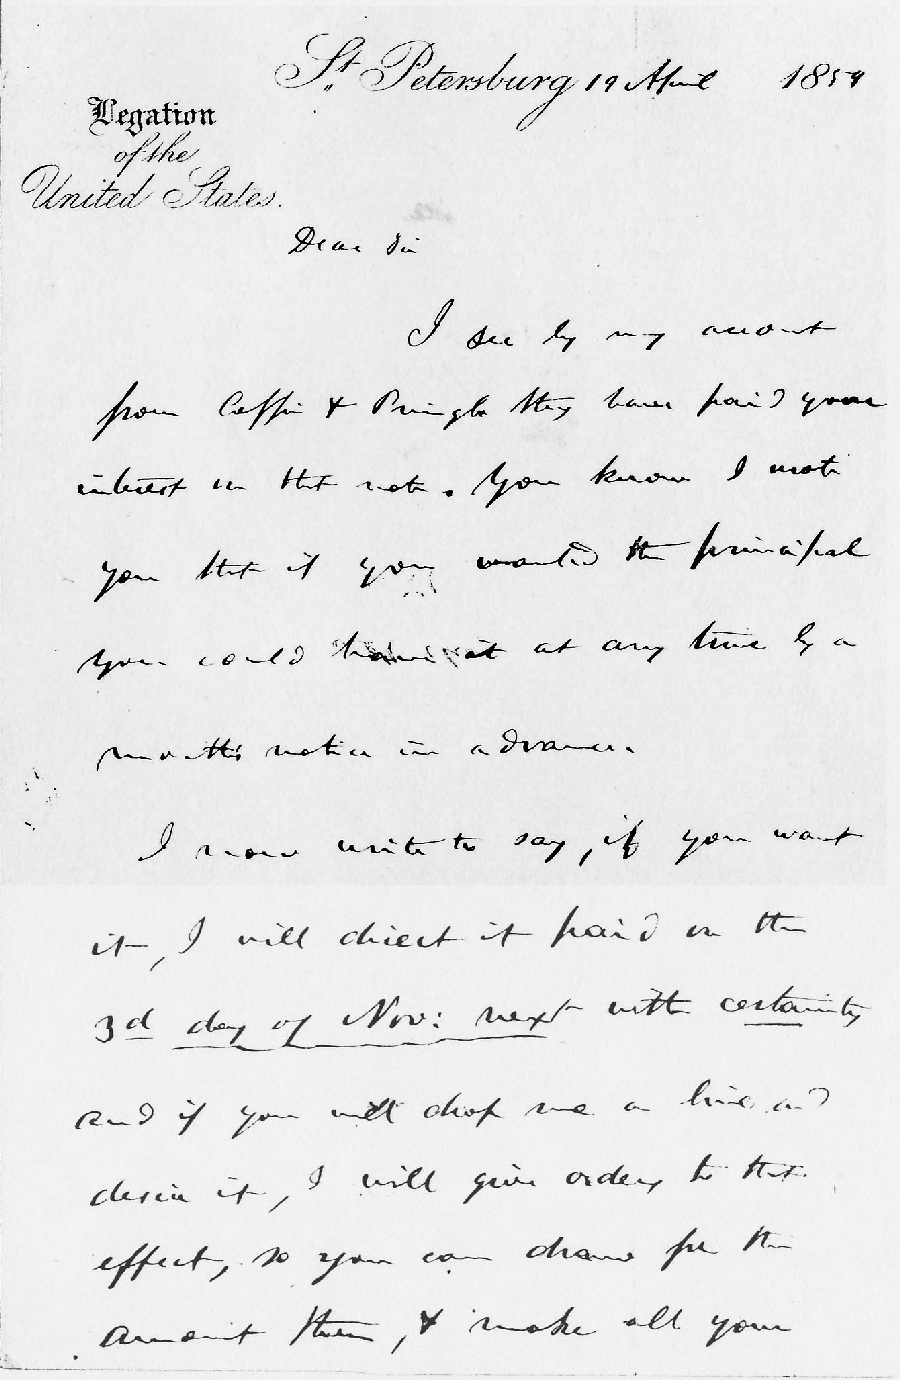 St. Petersburg 19 April 1859
Legation
of the
United States.
Dear Sir
I see by my account
from Coffin & Pringle they have paid your
interest on that note. You know I wrote
you that if you wanted the principal
you could have it at any time by a
month's notice in advance.
I now write to say, if you want
it, I will direct it paid on the
3rd day of Nov: next with certainty
and if you will drop me a line and
desire it, I will give orders to that
effect, so you can draw for the
amount then, & make all your